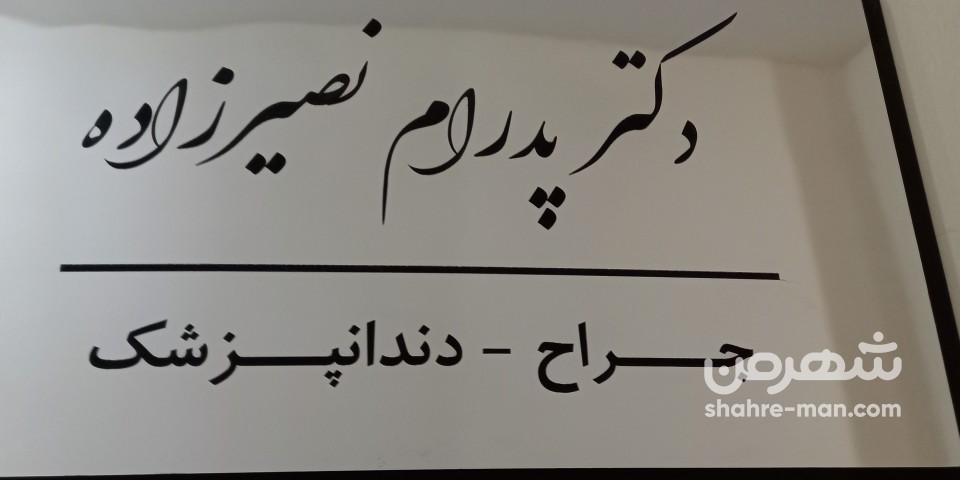 دکتر پدرام نصیرزاده
جراح - دندانپزشک
شهرمن
shahre-man.com